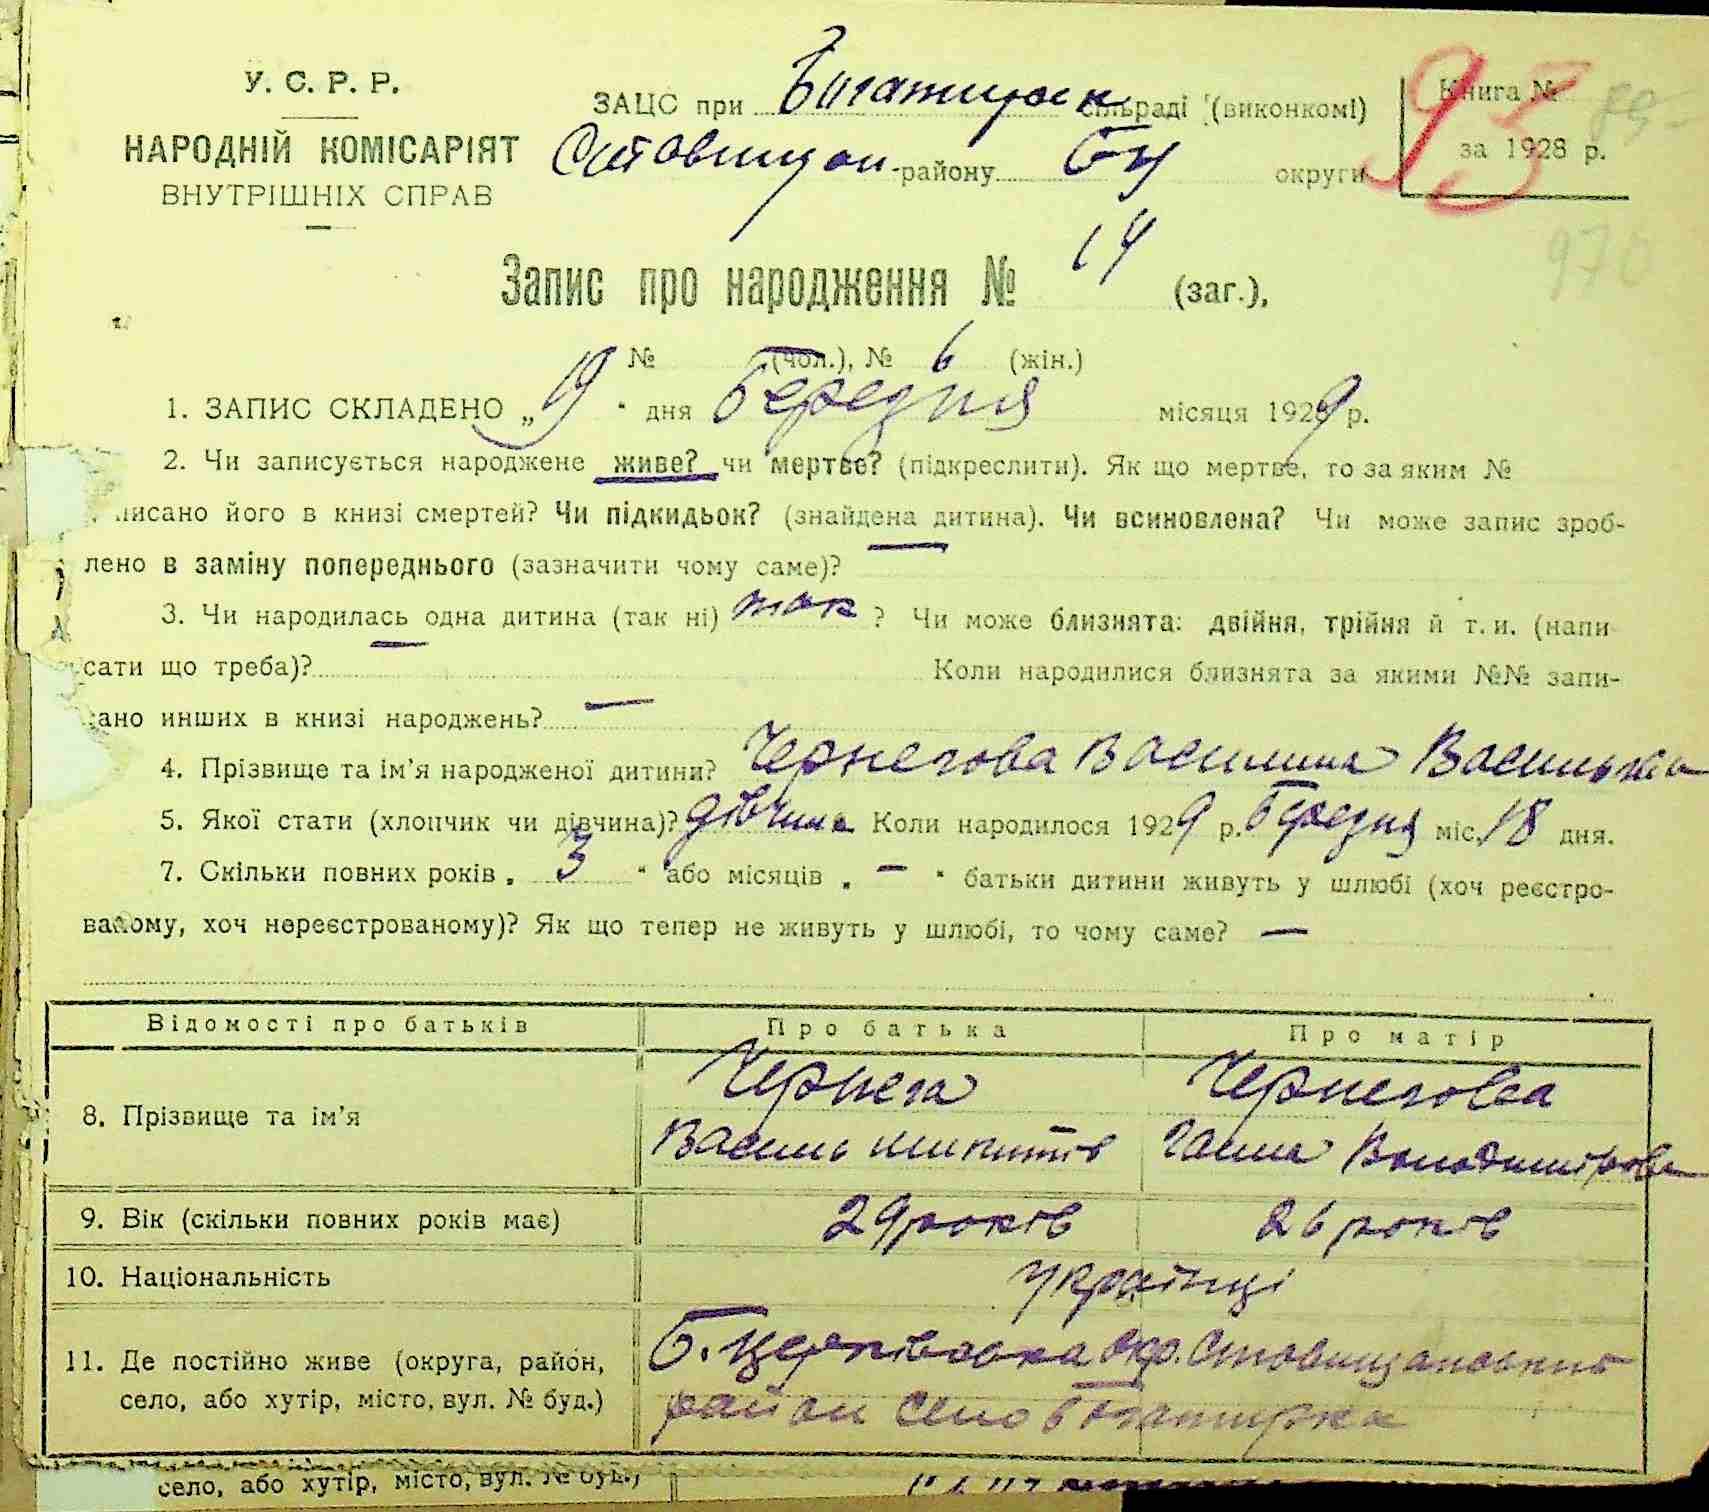 У. С. Р. Р.
НАРОДНІЙ КОМІСАРІЯТ
ВНУТРІШНІХ СПРАВ
ЗАЦС при Богатирськ сільраді (виконкомі)
району Бц округи
Книга №
за 1928 р.
93
89
970
Запис про народження № 14 (заг.),
№ (чол.), № 6 (жін.)
1. ЗАПИС СКЛАДЕНО „19" дня Березня місяця 1929 р.
2. Чи записується народжене живе? чи мертве? (підкреслити). Як що мертве, то за яким №
писано його в книзі смертей? Чи підкидьок? (знайдена дитина). Чи всиновлена? Чи може запис зроб-
лено в заміну попереднього (зазначити чому саме)? —
3. Чи народилась одна дитина (так ні) так ? Чи може близнята: двійня, трійня й т. и. (напи-
сати що треба)? — Коли народилися близнята за якими №№ запи-
сано инших в книзі народжень? —
4. Прізвище та ім'я народженої дитини? Чернегова Василина Василька
5. Якої стати (хлопчик чи дівчина)? дівчина Коли народилося 1929 р. Березня міс. 18 дня.
7. Скільки повних років „ 3 " або місяців „ — " батьки дитини живуть у шлюбі (хоч реєстро-
ваному, хоч нереєстрованому)? Як що тепер не живуть у шлюбі, то чому саме? —
Відомості про батьків Про батька Про матір
8. Прізвище та ім'я
Чернега Чернегова
Василь Микитів Ганна Володимірова
9. Вік (скільки повних років має) 29 років 26 років
10. Національність Українці
11. Де постійно живе (округа, район,
село, або хутір, місто, вул. № буд.)
Б. Церківська окр. Ставищанський
район село Богатирка
село, або хутір, місто, вул. № буд.)